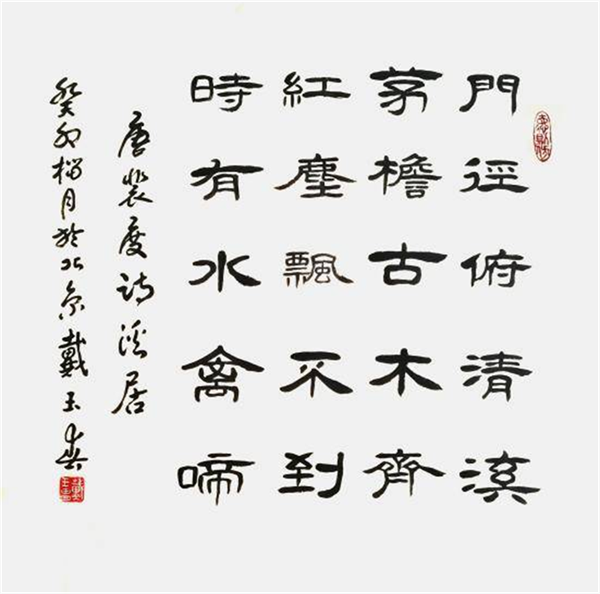 門徑俯清溪
茅檐古木齊
紅塵飄不到
時有水禽啼
唐裴度诗溪居
癸卯榴月於北京戴玉春